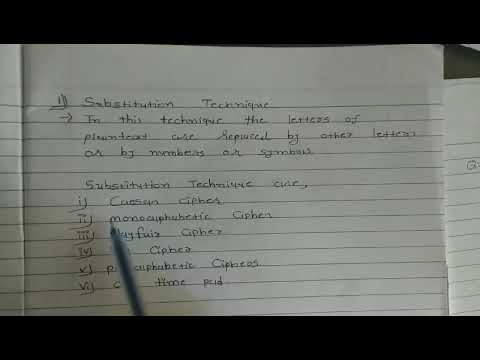 1) Substitution Technique
→ In this technique the letters of
plaintext are replaced by other letters
or by numbers or symbols
Substitution Technique are,
i) Caesar Cipher
ii) monoalphabetic Cipher
iii) Playfair Cipher
iv) Cipher
v) polyalphabetic Ciphers
vi) time pad
Q